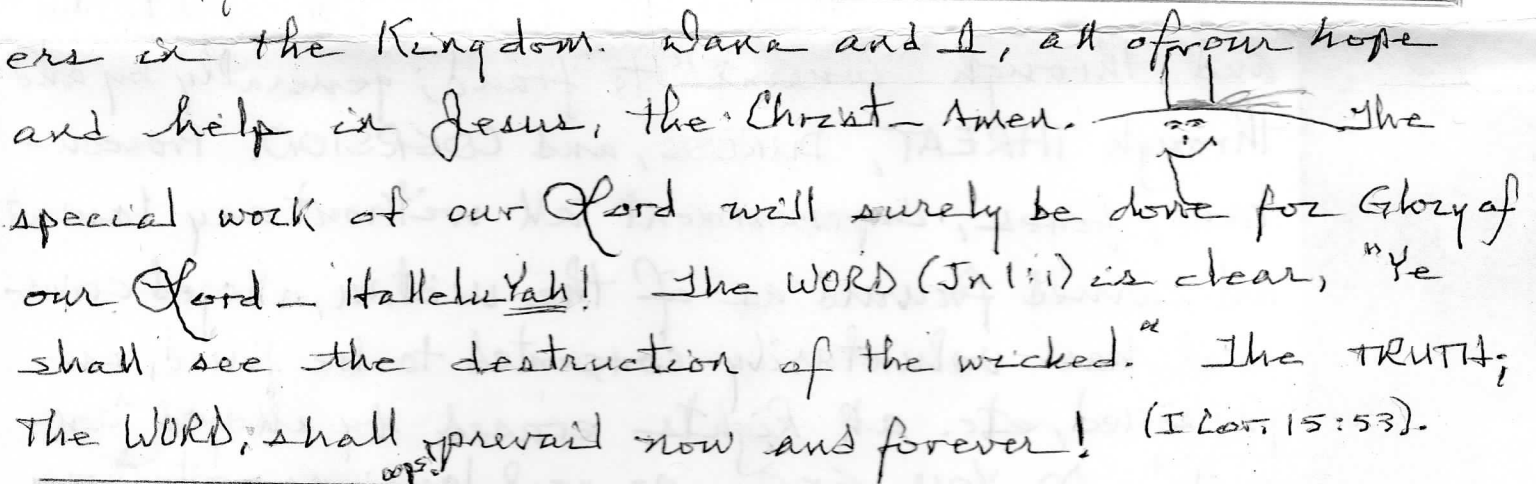 ers in the Kingdom. Dana and I, all of our hope
and help in Jesus, the Christ - Amen. The
special work of our Lord will surely be done for Glory of
our Lord - HalleluYah! The WORD (Jn 1:1) is clear, "Ye
shall see the destruction of the wicked." The TRUTH;
The WORD; shall prevail now and forever! (I Cor. 15:53).
oops!